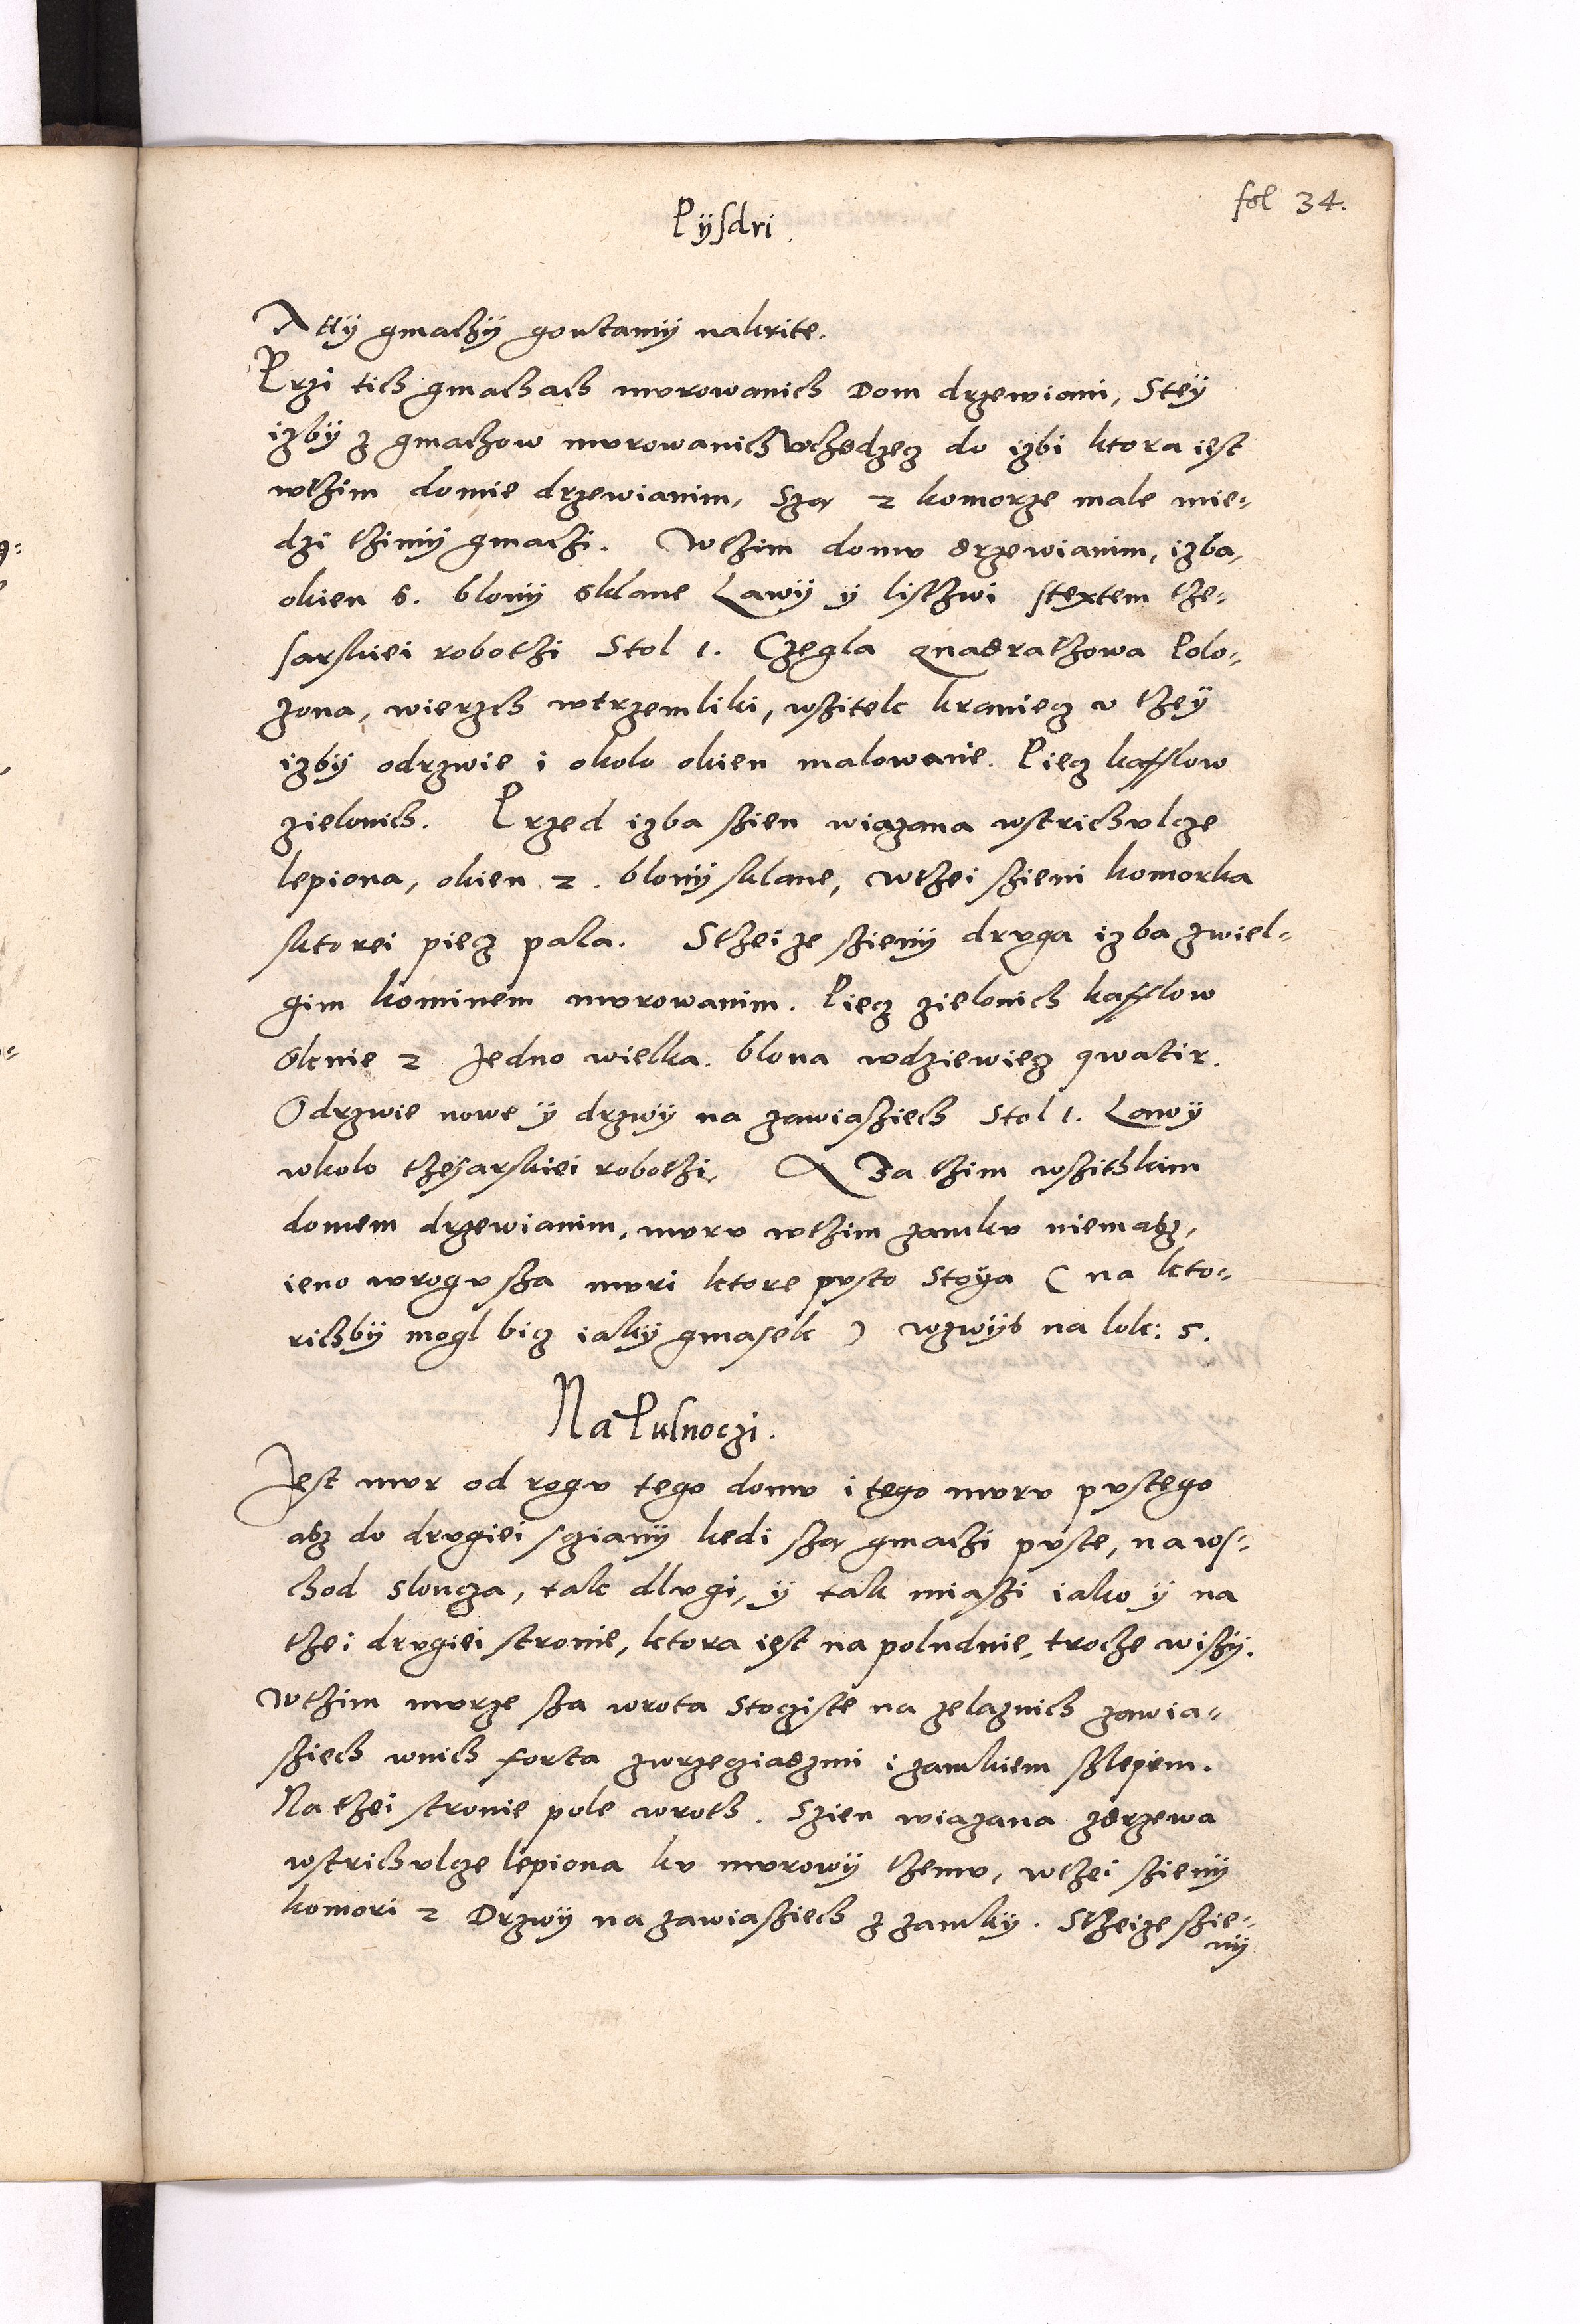 fol 34.
Pÿsdri.
A tÿ gmachÿ gontamÿ nakrite.
Przi tich gmachach murowanich Dom drzewiani, Stëÿ
izbÿ z gmachow murowanich wchodzącz do izbi ktora iest
wthim domie drzewianim, Szą 2 komorze male mie-
dzi thimÿ gmachi. Wthim domu drzewianim, izba,
okien 6. blonÿ sklane Lawÿ ÿ listhwi stextem the-
sarskiei robothi Stol 1. Czegla quadrathowa Polo-
zona, wierzch wtrzemliki, wszitek kraniecz v theÿ
izbÿ odrzwie i okolo okien malowane. Piecz kafflow
zielonich. Przed izba szien wiązana wstrichulcze
lepiona, okien 2. blonÿ sklane, wthei szieni komorka
sktorei piecz pala. Stheize szienÿ druga izba zwiel-
gim kominem murowanim. Piecz zielonich kafflow
oknie 2 Jedno wielka. blona wdziewiecz qwatir.
Odrzwie nowe ÿ drzwÿ na zawiasziech Stol 1. Lawÿ
wkolo thesarskiei robothi. A Za thim wszithkim
domem drzewianim, muru wthim zamku niemasz,
ieno wrogu sza muri ktore pusto Stoÿa ( na kto-
richbÿ mogl bicz iakÿ gmasek ) wzwÿs na lok: 5.
Na Pulnoczi.
Jest mur od rogu tego domu i tego muru pustego
asz do drugiei scianÿ kedi szą gmachi puste, na ws-
chod sloncza, tak dlugi, ÿ tak miaszi iako ÿ na
thei drugiei stronie, ktora iest na poludnie, troche wiszÿ.
Wthim murze sza wrota Stocziste na zelaznich zawia-
sziech wnich forta zwrzecziadzmi i zamkiem szlepim.
Na thei stronie pole wroth. Szien wiązana zdrzewa
wstrichulcze lepiona ku murowÿ themu, wthei szienÿ
komori 2 Drzwÿ na zawiasziech z zamkÿ. Stheize szie-
nÿ